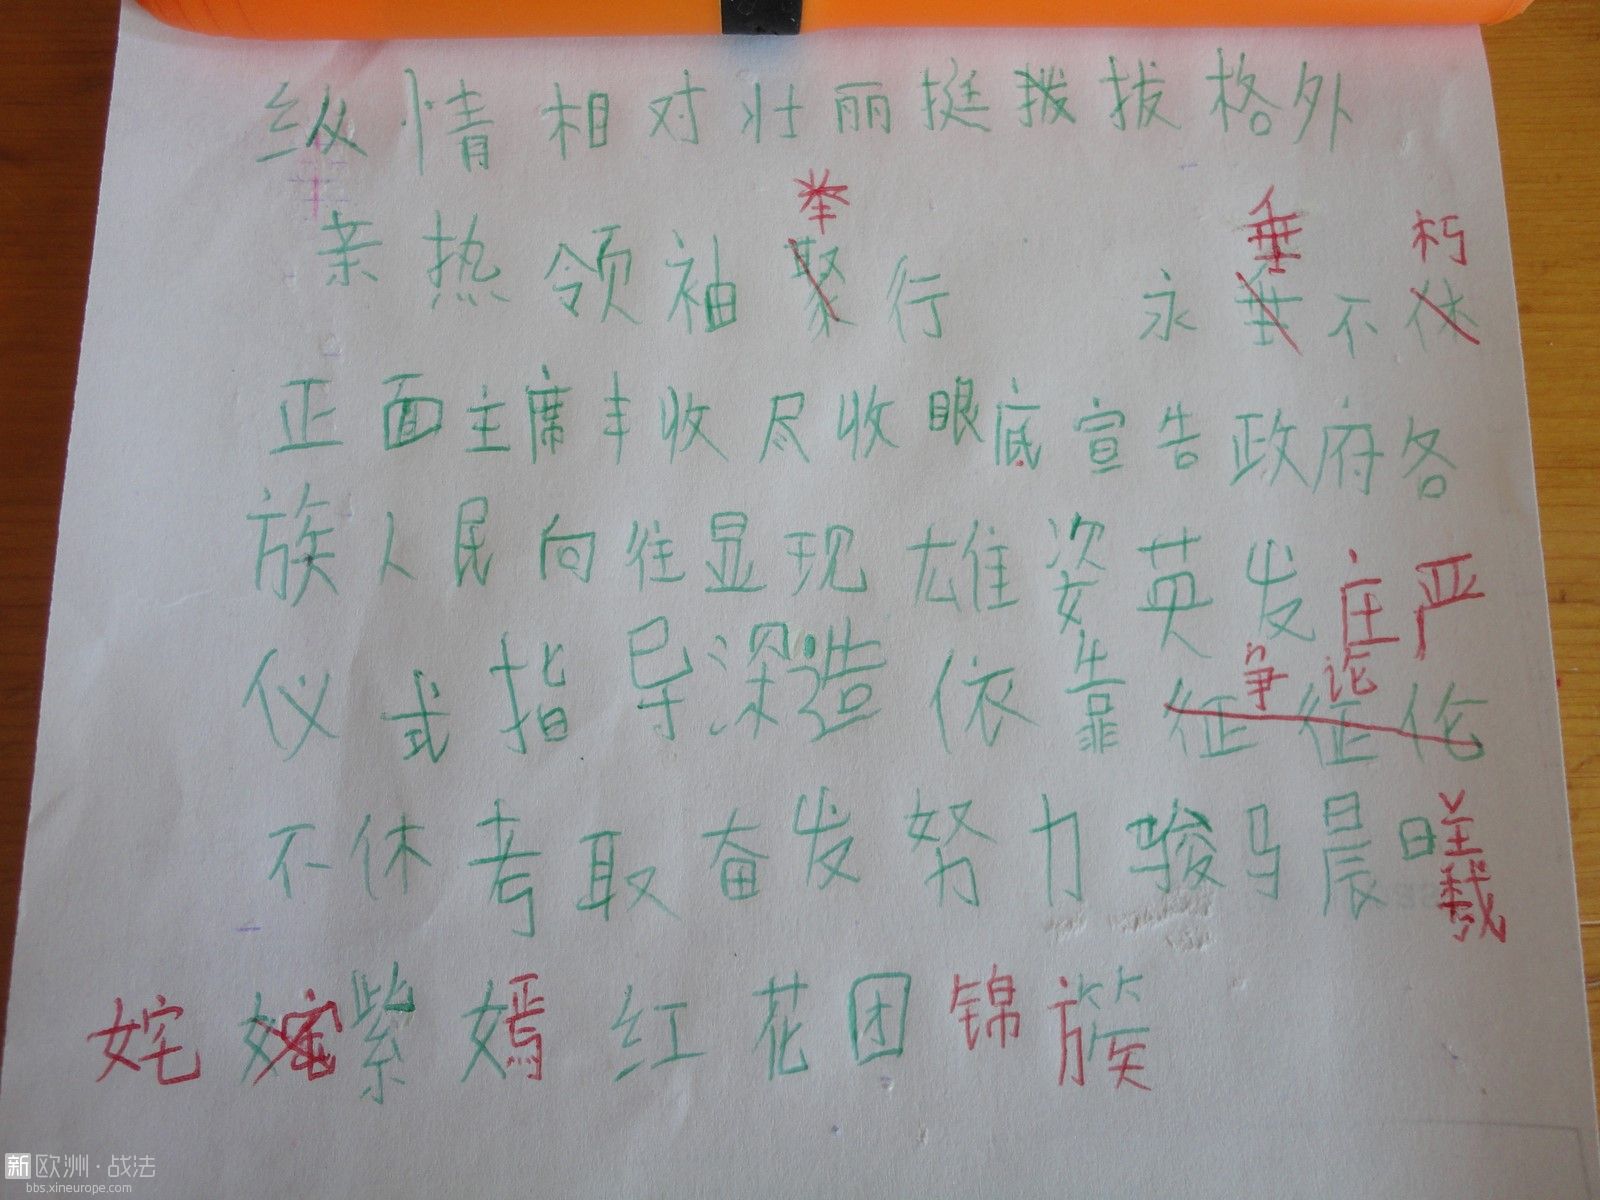 纵情相对壮丽挺拨拔格外
举 垂 朽
亲热领袖聚行 永垂不休
正面主席丰收尽收眼底宣告政府各
族人民向往显现雄姿英发庄严
仪式指导深造依靠征征伦
争论
不休考取奋发努力骏马晨曦
姹紫嫣红花团锦簇
新欧洲·战法
bbs.xineurope.com